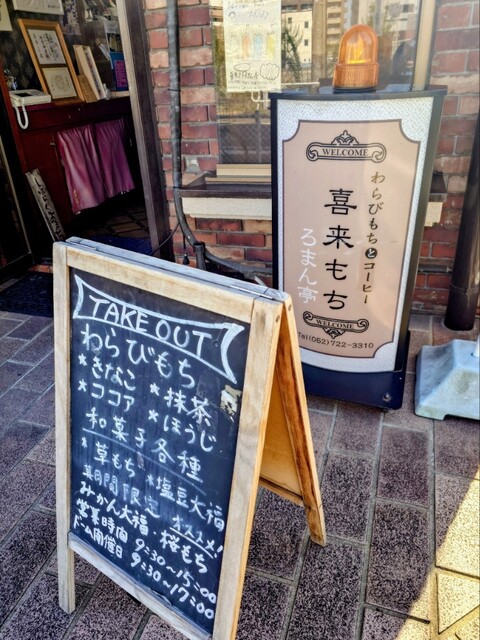 WELCOME
わらびもちとコーヒー
喜来もち
ろまん亭
WELCOME
Tel (052)722-3310
TAKE OUT
わらびもち
*きなこ *抹茶
*ココア *ほうじ
和菓子各種
*草もち *塩豆大福
期間限定 オススメ!
みかん大福 桜もち
営業時間 9:30~15:00
ドーム開催日 9:30~17:00